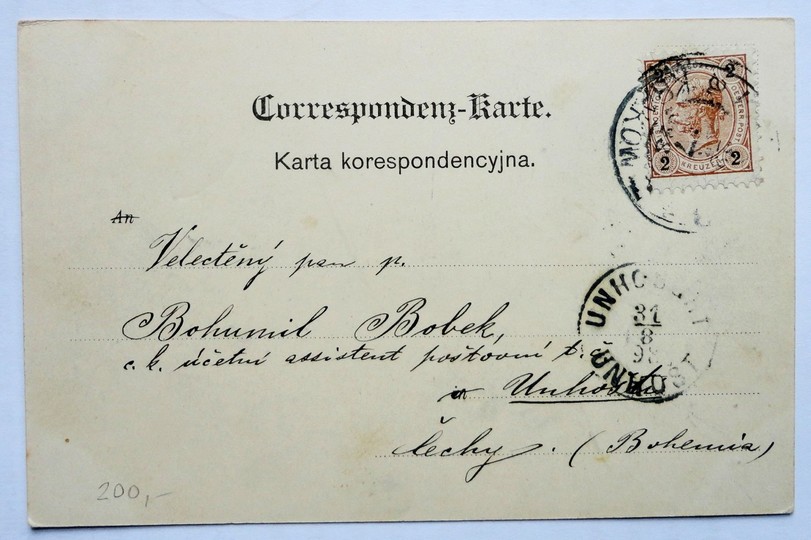 Correspondenz-Karte.
Karta korespondencyjna.
2 2
KREUZER
2 2
An
Velectěný pan p.
Bohumil Bobek,
c. k. účetní assistent poštovní t. č.
Unhošti
Čechy. (Bohemia)
UNHOSCHT
31
8
UNHOŠŤ
200,-